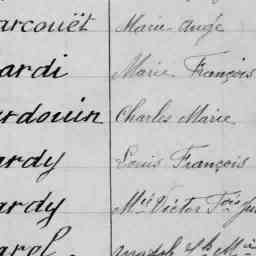 arcouët Marie-Ange
ardi Marie François
ardouin Charles Marie
ardy Louis François
ardy Mie Victor Fois
arel